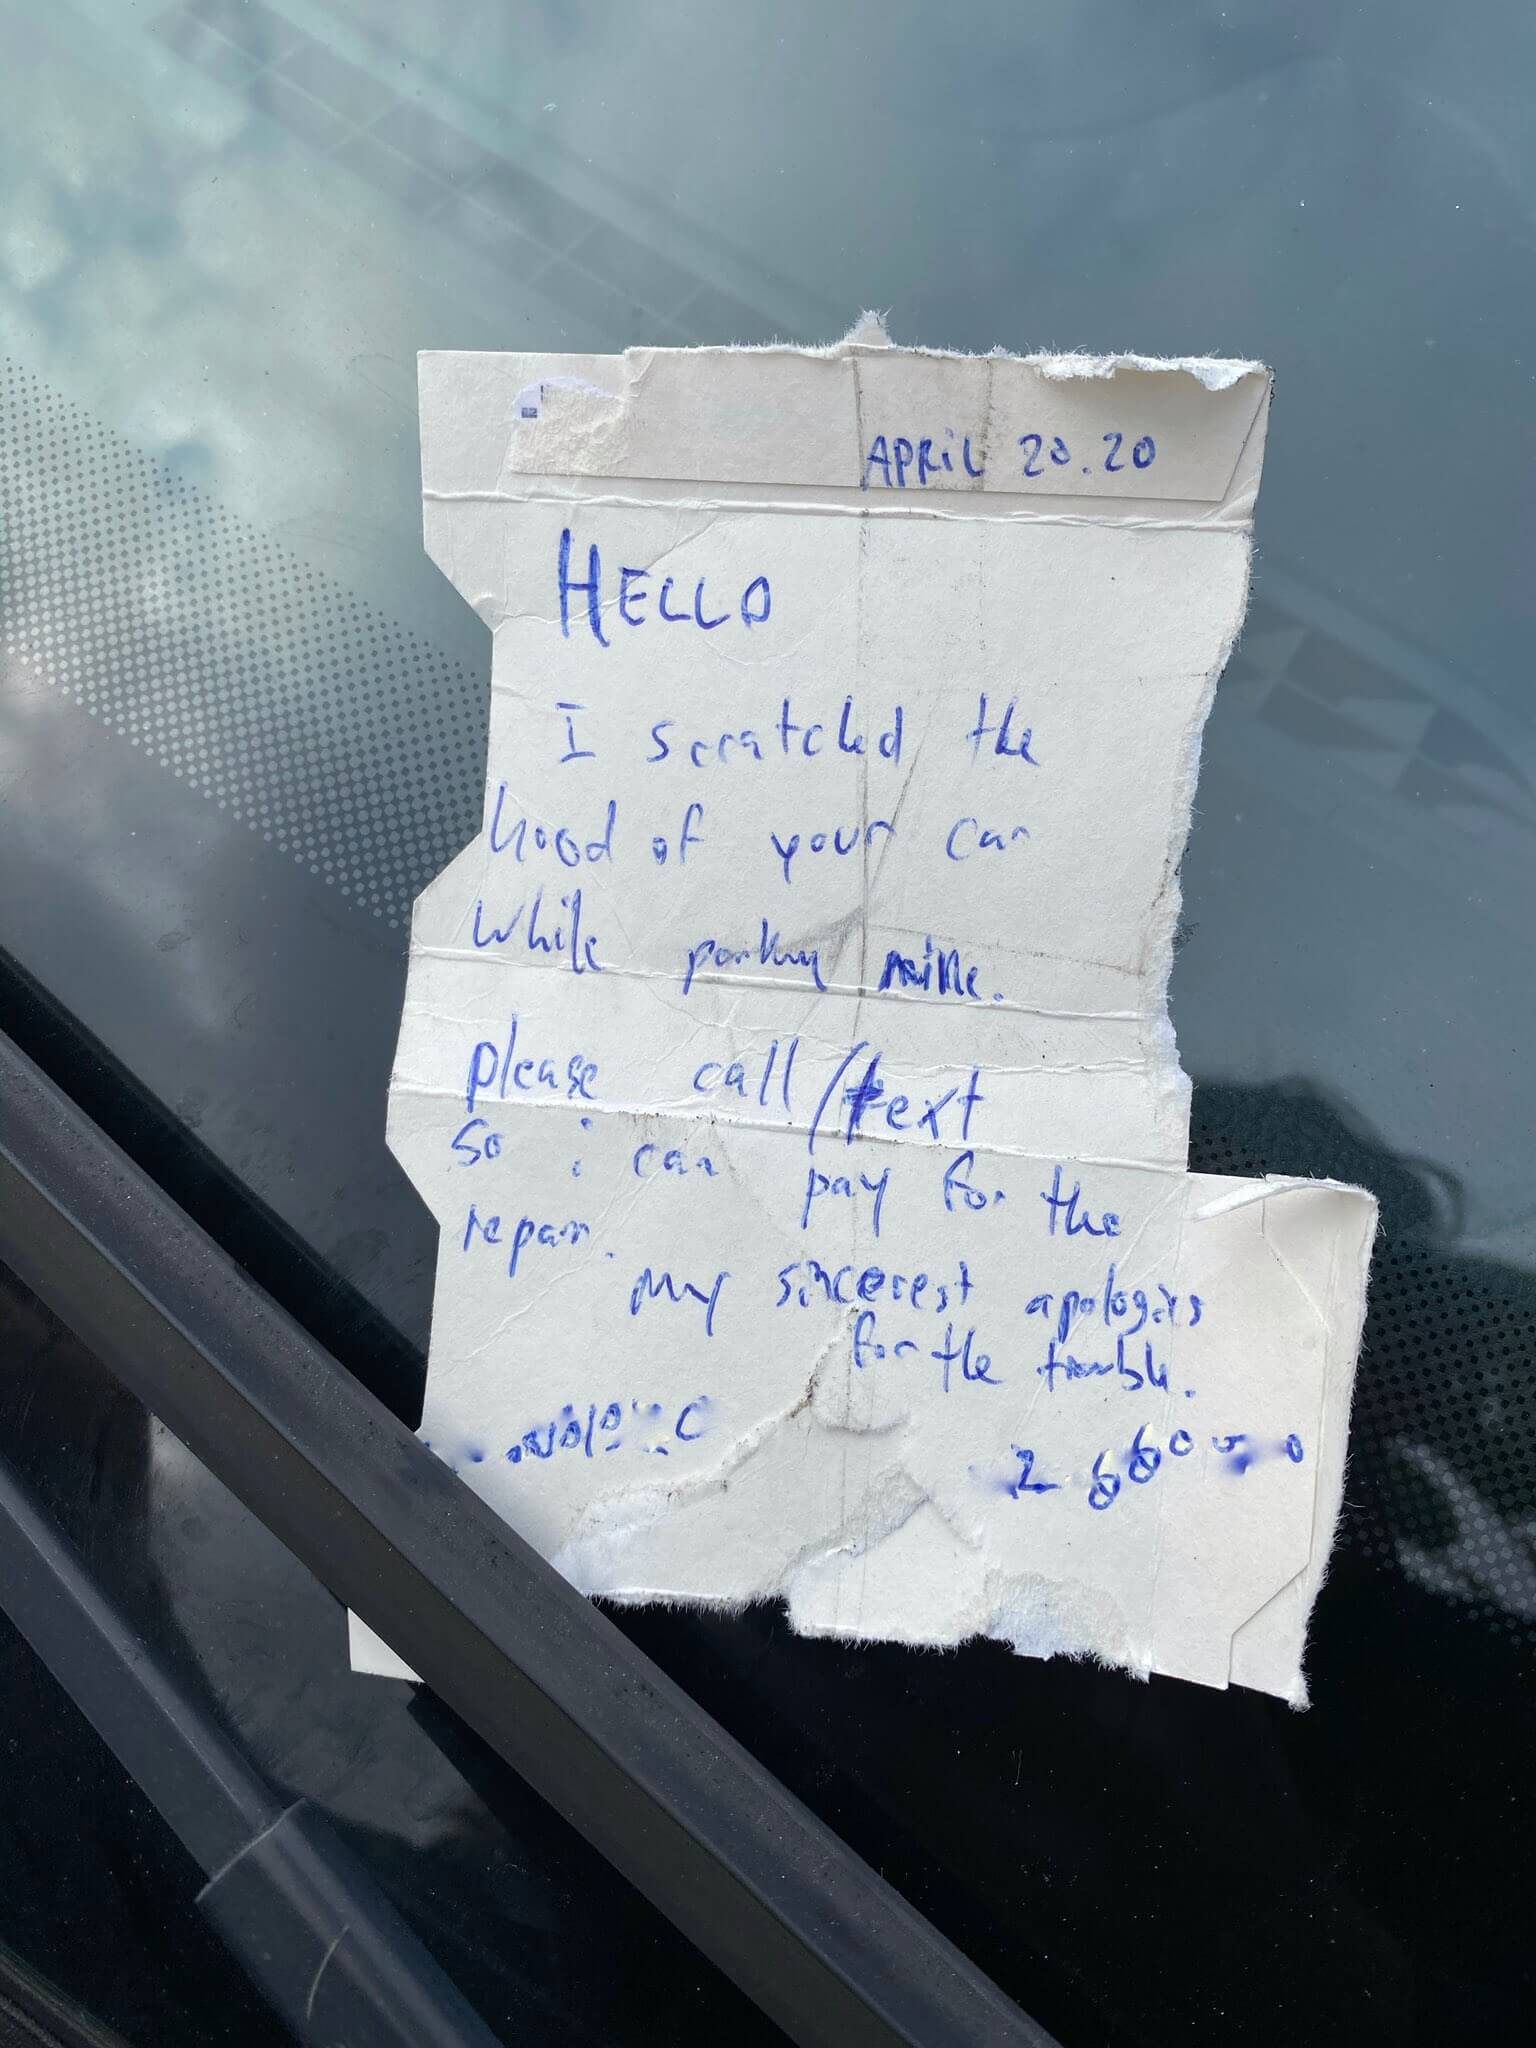 APRIL 20.20
HELLO
I scratched the
hood of your car
while parking mine.
please call/text
so i can pay for the
repair.
My sincerest apologies
for the trouble.